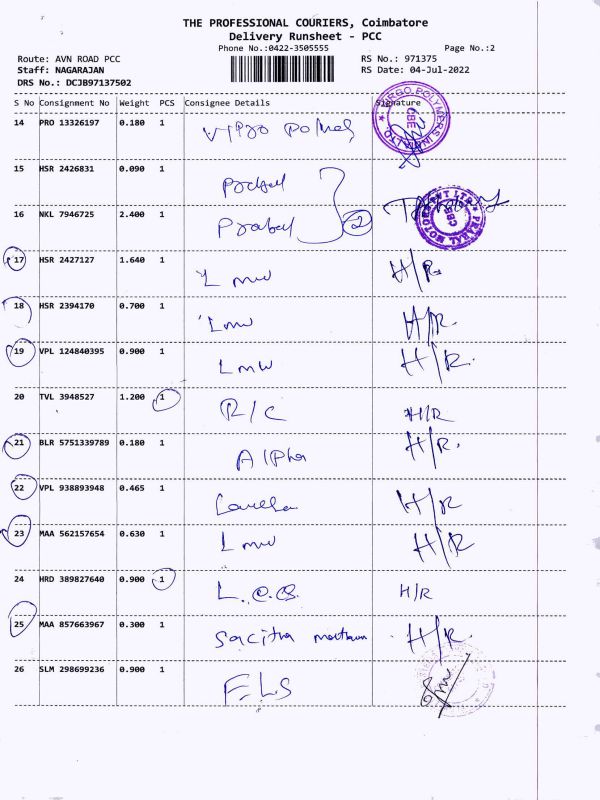 THE PROFESSIONAL COURIERS, Coimbatore
Delivery Runsheet - PCC
Phone No.:0422-3505555 Page No.:2
Route: AVN ROAD PCC RS No.: 971375
Staff: NAGARAJAN RS Date: 04-Jul-2022
DRS No.: DCJB97137502
S No Consignment No Weight PCS Consignee Details Signature
14 PRO 13326197 0.180 1
15 HSR 2426831 0.090 1
16 NKL 7946725 2.400 1 2
17 HSR 2427127 1.640 1 Lmw H/R
18 HSR 2394170 0.700 1 Lmw H/R.
19 VPL 124840395 0.900 1 Lmw H/R.
20 TVL 3948527 1.200 1 R/C H/R
21 BLR 5751339789 0.180 1 Alpha H/R.
22 VPL 938893948 0.465 1 H/R
23 MAA 562157654 0.630 1 Lmw H/R
24 HRD 389827640 0.900 1 H/R
25 MAA 857663967 0.300 1 H/R.
26 SLM 298699236 0.900 1 ELS